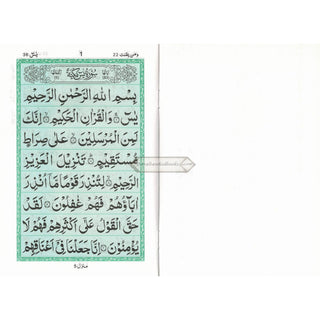 يٰسٓ 36 ٦ وَمَن يَّقنُت 22
سُوْرَةُ يٰسٓ مَكِّيَّةٌ
بِسْمِ اللهِ الرَّحْمٰنِ الرَّحِيْمِ
يٰسٓ ۚ وَالْقُرْاٰنِ الْحَكِيْمِ ۙ اِنَّكَ
لَمِنَ الْمُرْسَلِيْنَ ۙ عَلٰى صِرَاطٍ
مُّسْتَقِيْمٍ ۙ تَنْزِيْلَ الْعَزِيْزِ
الرَّحِيْمِ ۙ لِتُنْذِرَ قَوْمًا مَّاۤ اُنْذِرَ
اٰبَآؤُهُمْ فَهُمْ غٰفِلُوْنَ ۙ لَقَدْ
حَقَّ الْقَوْلُ عَلٰٓى اَكْثَرِهِمْ فَهُمْ لَا
يُؤْمِنُوْنَ ۙ اِنَّا جَعَلْنَا فِيْٓ اَعْنَاقِهِمْ
منزل ٥